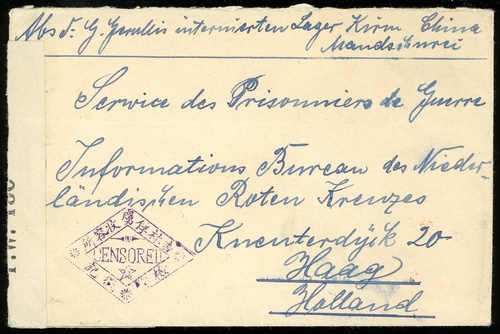 Abs. d. G. Gerullis internierten Lager Kirin China
Mandschurei
Service des Prisonniers de Guerre
Informations Bureau des Nieder-
ländischen Roten Kreuzes
Knenterdÿk 20
Haag
Holland
CENSORED
P.W. 180